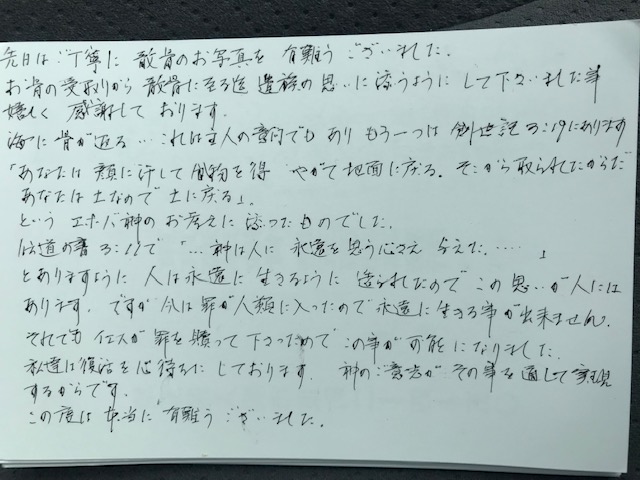 先日はご丁寧に 散骨のお写真を 有難う ございました．
お骨の受取りから 散骨に至る迄 遺族の 思いに 添うように して下さいました事
嬉しく 感謝して おります．
海に 骨が返る … これは主人の意向でも あり もう一つは 創世記 3:19にあります
「あなたは 顔に汗して 食物を得 やがて 地面に戻る．そこから 取られたからだ
あなたは 土なので 土に戻る」．
という エホバ神の お考えに 添ったものでした．
伝道の書 3:11で 「… 神は人に 永遠を思う心さえ 与えた．…… 」
とありますように 人は永遠に 生きるように 造られたので この思いが人には
あります．ですが 今は罪が人類に入ったので永遠に生きる事が出来ません．
それでも イエスが 罪を 贖って 下さったので この事が可能に なりました．
私達は復活を心待ちに しております． 神のご意志が その事を通して実現
するからです．
この度は 本当に 有難う ございました．